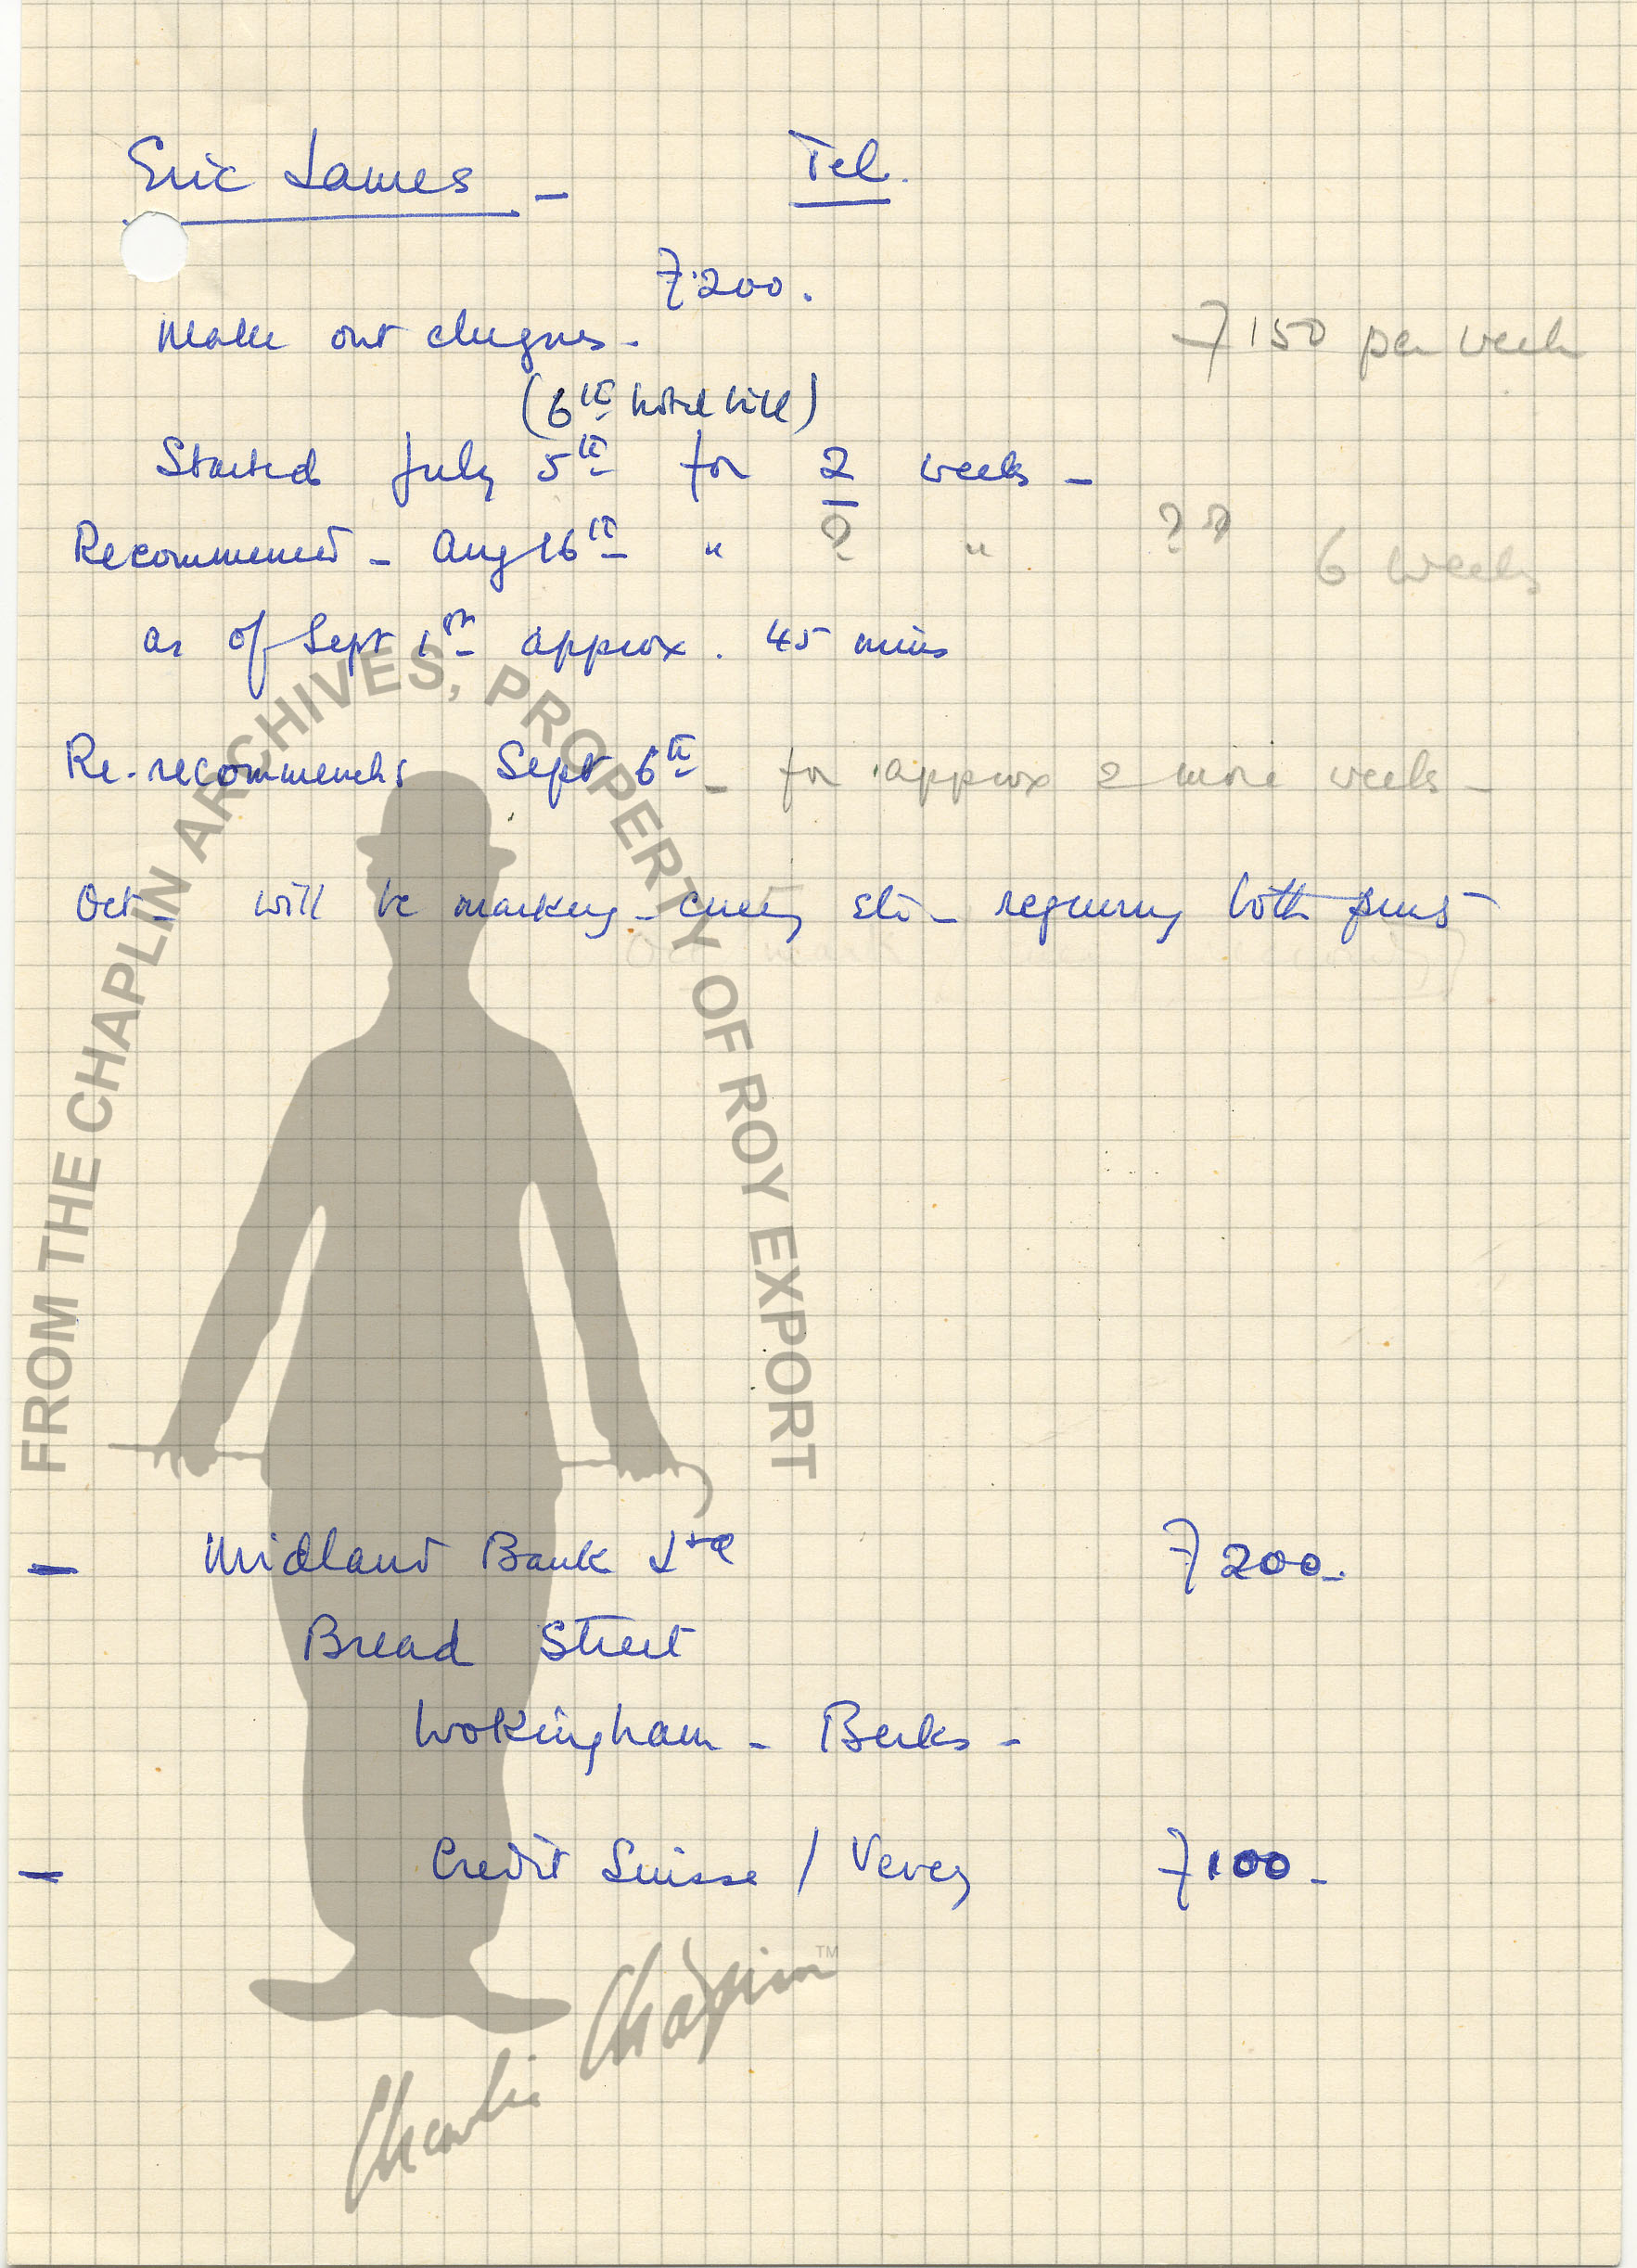 Eric James - Tel.
£200.
Make out cheques - £150 per week
(6th hotel bill)
Started July 5th for 2 weeks -
Recommenced - Aug 16th " ? " ? ? 6 weeks
as of Sept 1st approx. 45 mins
Re-recommences Sept 6th - for approx 2 more weeks -
Oct - will be marking - cueing etc - requiring both
Oct mark
- Midland Bank Ltd £200-
Bread Street
Wokingham - Berks -
- Credit Suisse / Vevey £100-
FROM THE CHAPLIN ARCHIVES, PROPERTY OF ROY EXPORT
Charlie Chaplin™